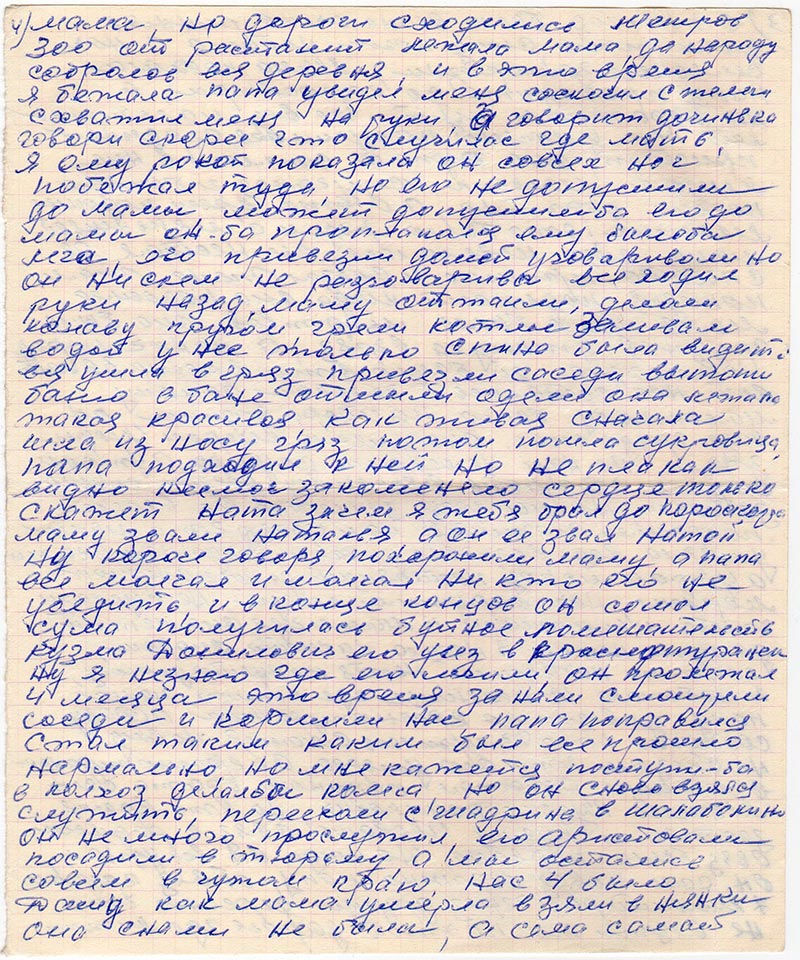 4) мама, но дороги сходились метров
300 от растаний лежала мама, да народу
собролос вся деревня, и в это время
я бежала папа увидел меня соскочил с телеги
схватил меня на руки, а говорит дочинька
говори скорее что случилас где мать,
я ему рокой показала он совсех ног
побежал туда, но его не допустили
до мамы, может допустилиба его до
мамы он-ба проплакался ему былоба
его привезли домой уговаривали но
он нискем не разговаривал все ходил
руки назад, маму оттаили, делали
конаву кругом грели котлы заливали
водой у нее только спина была видить
вся ушла в гряз привезли соседи вытопили
баню в бане отмыли одели она лежала
такая красивоя как живая сначала
шла из носу гряз потом пошла сукровица,
папа подходил к ней но не плакал
видно несмог закоменело сердце только
скажет Ната зачем я тебя брал до
маму звали Наталья а он ее звал Натой
Ну короч говоря, похоронили маму, а папа
все молчал и молчал Ни кто его не
убедить, и в конце концов он сошол
сума получилась буйное помешательств
Кузма Данилович его увез в
ну я незнаю где его лечили, он пролежал
4 месяца, это время за нами смотрели
соседи и кормили нас папа поправился
Стал таким каким был все прошло
нармально, но мне кажется поступи-ба
в колхоз делалбы колеса но он снова взялся
служить, пересколи с Шадрина в Шалабокино
он не много прослужил, его аристовали
посадили в тюрому а мы остались
совсем в чужом краю, нас 4 было,
как мама умерла взяли в няньки
она снами не была, а сама самой